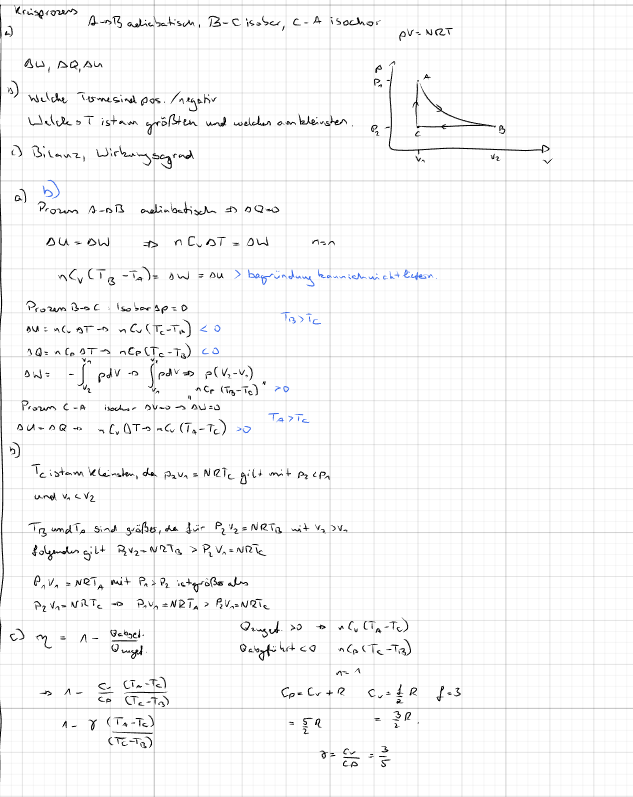 Kreisprozess
a) A→B adiabatisch, B-C isobar, C-A isochor
pV = NRT
ΔW, ΔQ, ΔU
b) Welche Terme sind pos. / negativ
Welches T ist am größten und welches am kleinsten.
c) Bilanz, Wirkungsgrad
p
P₁
A
P₂
C
B
V₁
V₂
V
a) b)
Prozess A→B adiabatisch ⇒ ΔQ=0
ΔU = ΔW ⇒ n Cᵥ ΔT = ΔW n=n
n Cᵥ (T_B - T_A) = ΔW = ΔU > begründung kann ich nicht liefern.
Prozess B→C : Isobar Δp = 0
T_B > T_C
ΔU = n Cᵥ ΔT → n Cᵥ (T_C - T_B) < 0
ΔQ = n Cp ΔT → n Cp (T_C - T_B) < 0
ΔW = - ∫ p dV → ∫ p dV ⇒ p(V₂-V₁)
V₁ V₂ V₂ V₁
" n Cp (T_B - T_C) " > 0
Prozess C-A isochor ΔV=0 → ΔW=0
T_A > T_C
ΔU = ΔQ → n Cᵥ ΔT → n Cᵥ (T_A - T_C) > 0
b)
T_C ist am kleinsten, da p₂V₁ = NRT_C gilt mit p₂ < p₁
und V₁ < V₂
T_B und T_A sind größer, da für P₂V₂ = NRT_B mit V₂ > V₁
folgendes gilt P₂V₂ = NRT_B > P₂V₁ = NRT_C
P₁V₁ = NRT_A mit P₁ > P₂ ist größer als
P₂V₁ = NRT_C ⇒ P₁V₁ = NRT_A > P₂V₁ = NRT_C
c) η = 1 - Qabgef. / Qzugef.
Qzugef > 0 → n Cᵥ (T_A - T_C)
Qabgführt < 0 n Cp (T_C - T_B)
n = 1
→ 1 - Cᵥ/Cp (T_A - T_C)/(T_C - T_B)
Cp = Cᵥ + R Cᵥ = f/2 R f = 3
1 - γ (T_A - T_C)/(T_C - T_B)
= 5/2 R = 3/2 R.
γ = Cᵥ/Cp = 3/5